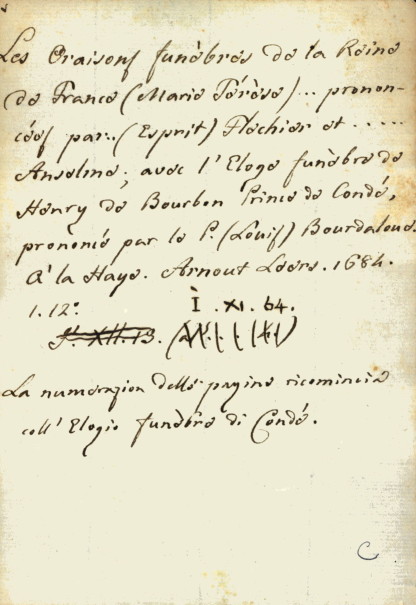 Les Oraisons funèbres de la Reine
de France (Marie Térèse)... pronon-
cées par (Esprit) Fléchier et .....
Anselme; avec l'Eloge funèbre de
Henry de Bourbon Prince de Condé,
prononcé par le P. (Louis) Bourdaloue.
A la Haye. Arnout Leers. 1684.
1. 12°. I. XI. 64.
La numerazion delle pagine ricomincia
coll' Elogio funèbre di Condé.
C